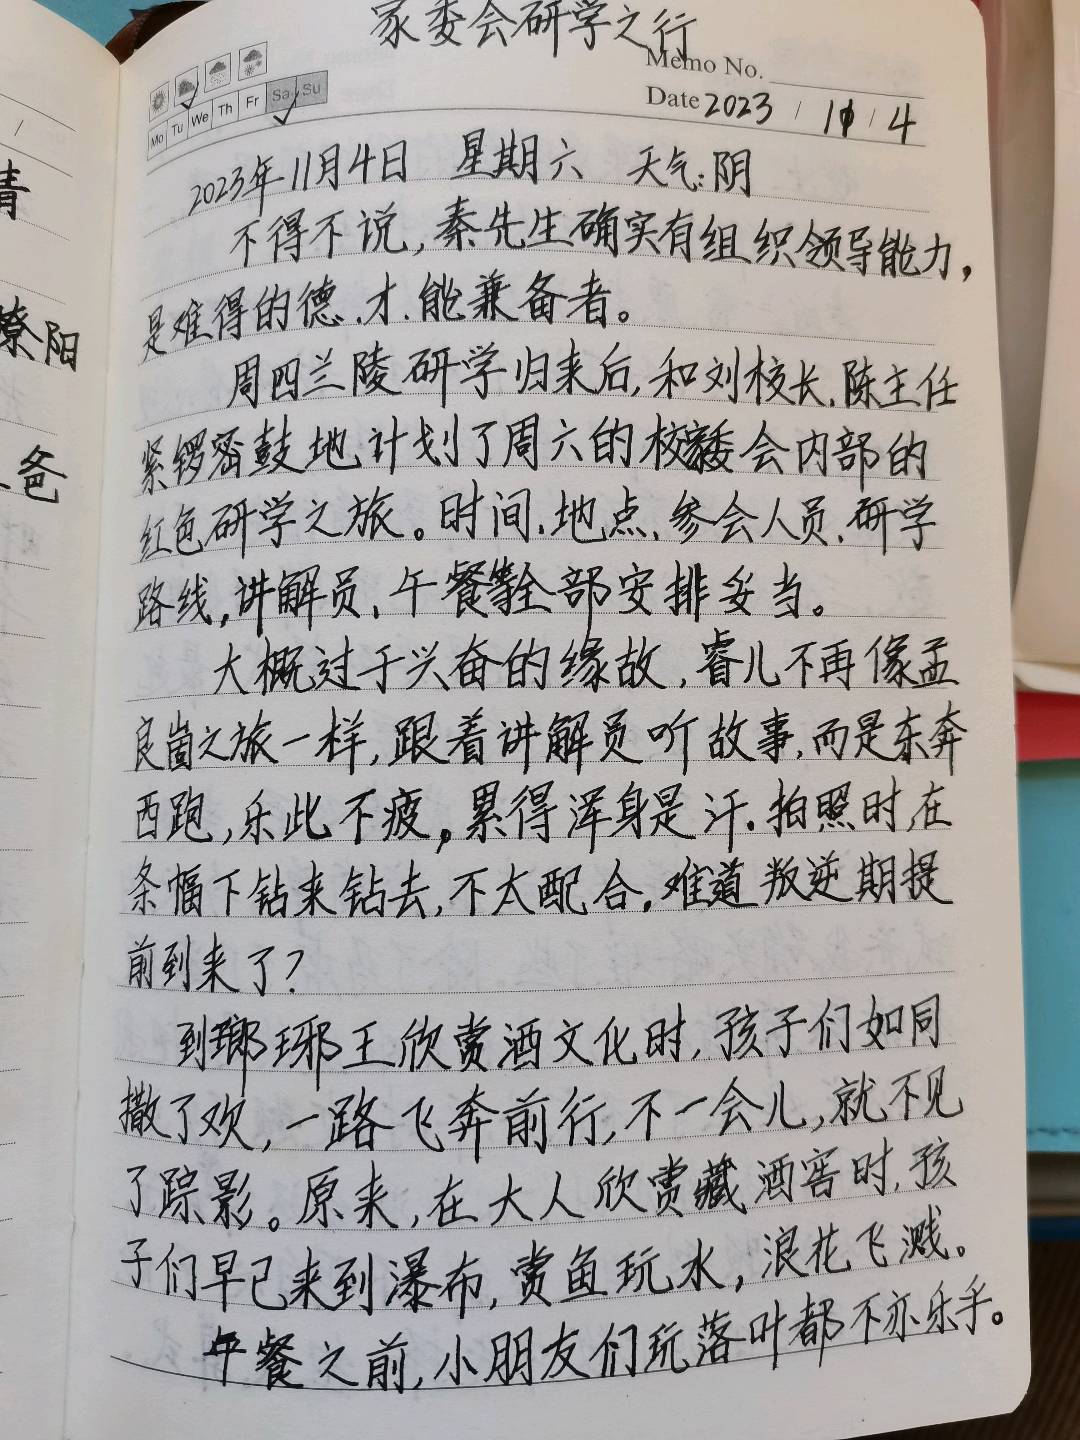 家委会研学之行
Memo No.
Date 2023 / 11 / 4
Mo Tu We Th Fr Sa Su
2023年11月4日 星期六 天气:阴
不得不说,秦先生确实有组织领导能力,
是难得的德、才、能兼备者。
周四兰陵研学归来后,和刘校长、陈主任
紧锣密鼓地计划了周六的校家委会内部的
红色研学之旅。时间、地点、参会人员、研学
路线,讲解员、午餐等全部安排妥当。
大概过于兴奋的缘故,睿儿不再像孟
良崮之旅一样,跟着讲解员听故事,而是东奔
西跑,乐此不疲,累得浑身是汗。拍照时,在
条幅下钻来钻去,不太配合。难道叛逆期提
前到来了?
到瑯琊王欣赏酒文化时,孩子们如同
撒了欢,一路飞奔前行,不一会儿,就不见
了踪影。原来,在大人欣赏藏酒窖时,孩
子们早已来到瀑布,赏鱼玩水,浪花飞溅。
午餐之前,小朋友们玩落叶都不亦乐乎。
青
阳
爸